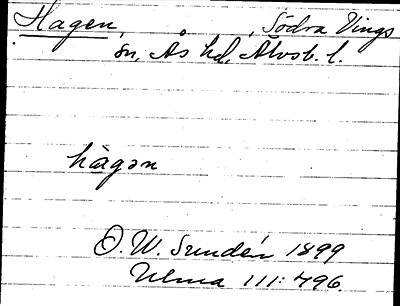 Hagen, , Södra Vings
sn, Ås hd, Älvsb. l.
hàgən
O. W. Sundén 1899
Ulma 111:496.